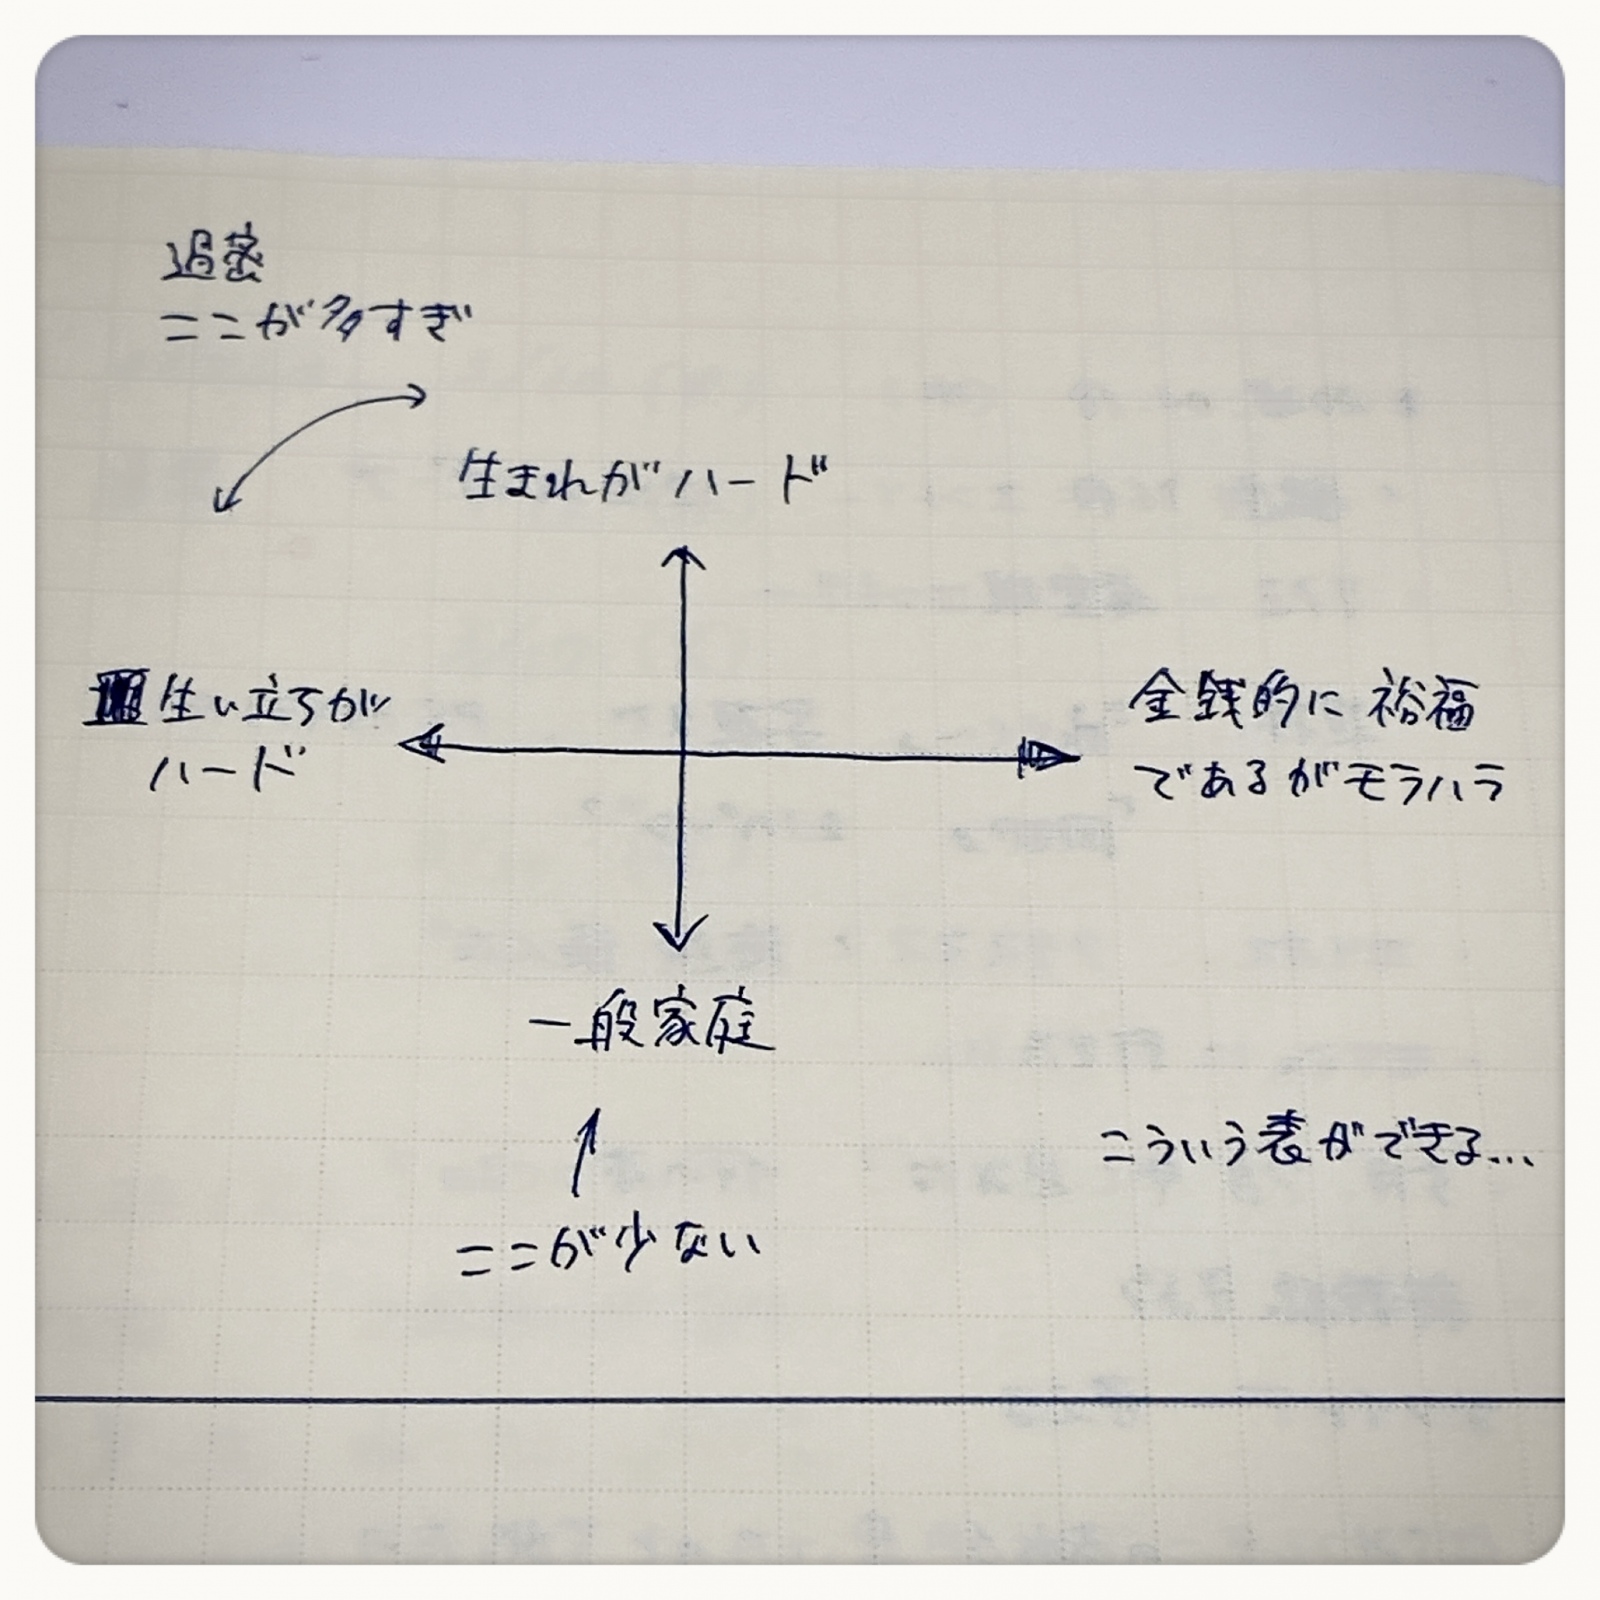 過密
ここが多すぎ
生まれがハード
生い立ちが
ハード
金銭的に裕福
であるがモラハラ
一般家庭
こういう表ができる...
ここが少ない